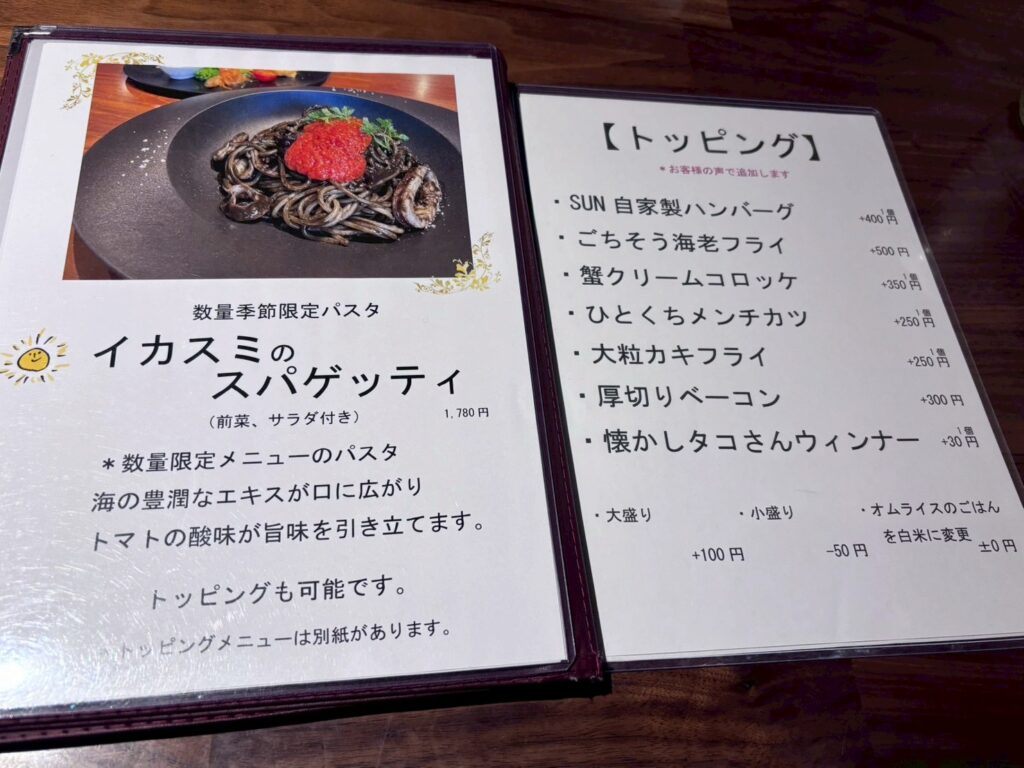 数量季節限定パスタ
イカスミの
スパゲッティ
（前菜、サラダ付き）
1,780円
＊数量限定メニューのパスタ
海の豊潤なエキスが口に広がり
トマトの酸味が旨味を引き立てます。
トッピングも可能です。
トッピングメニューは別紙があります。
【トッピング】
＊お客様の声で追加します
・SUN 自家製ハンバーグ 1個 +400円
・ごちそう海老フライ +500円
・蟹クリームコロッケ 1個 +350円
・ひとくちメンチカツ 1個 +250円
・大粒カキフライ 1個 +250円
・厚切りベーコン +300円
・懐かしタコさんウィンナー 1個 +30円
・大盛り
+100円
・小盛り
-50円
・オムライスのごはん
を白米に変更
±0円